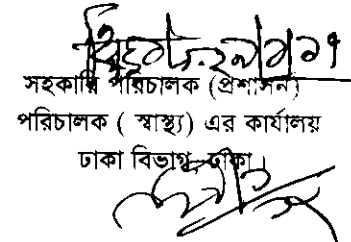 সহকারি পরিচালক (প্রশাসন)
পরিচালক ( স্বাস্থ্য) এর কার্যালয়
ঢাকা বিভাগ, ঢাকা